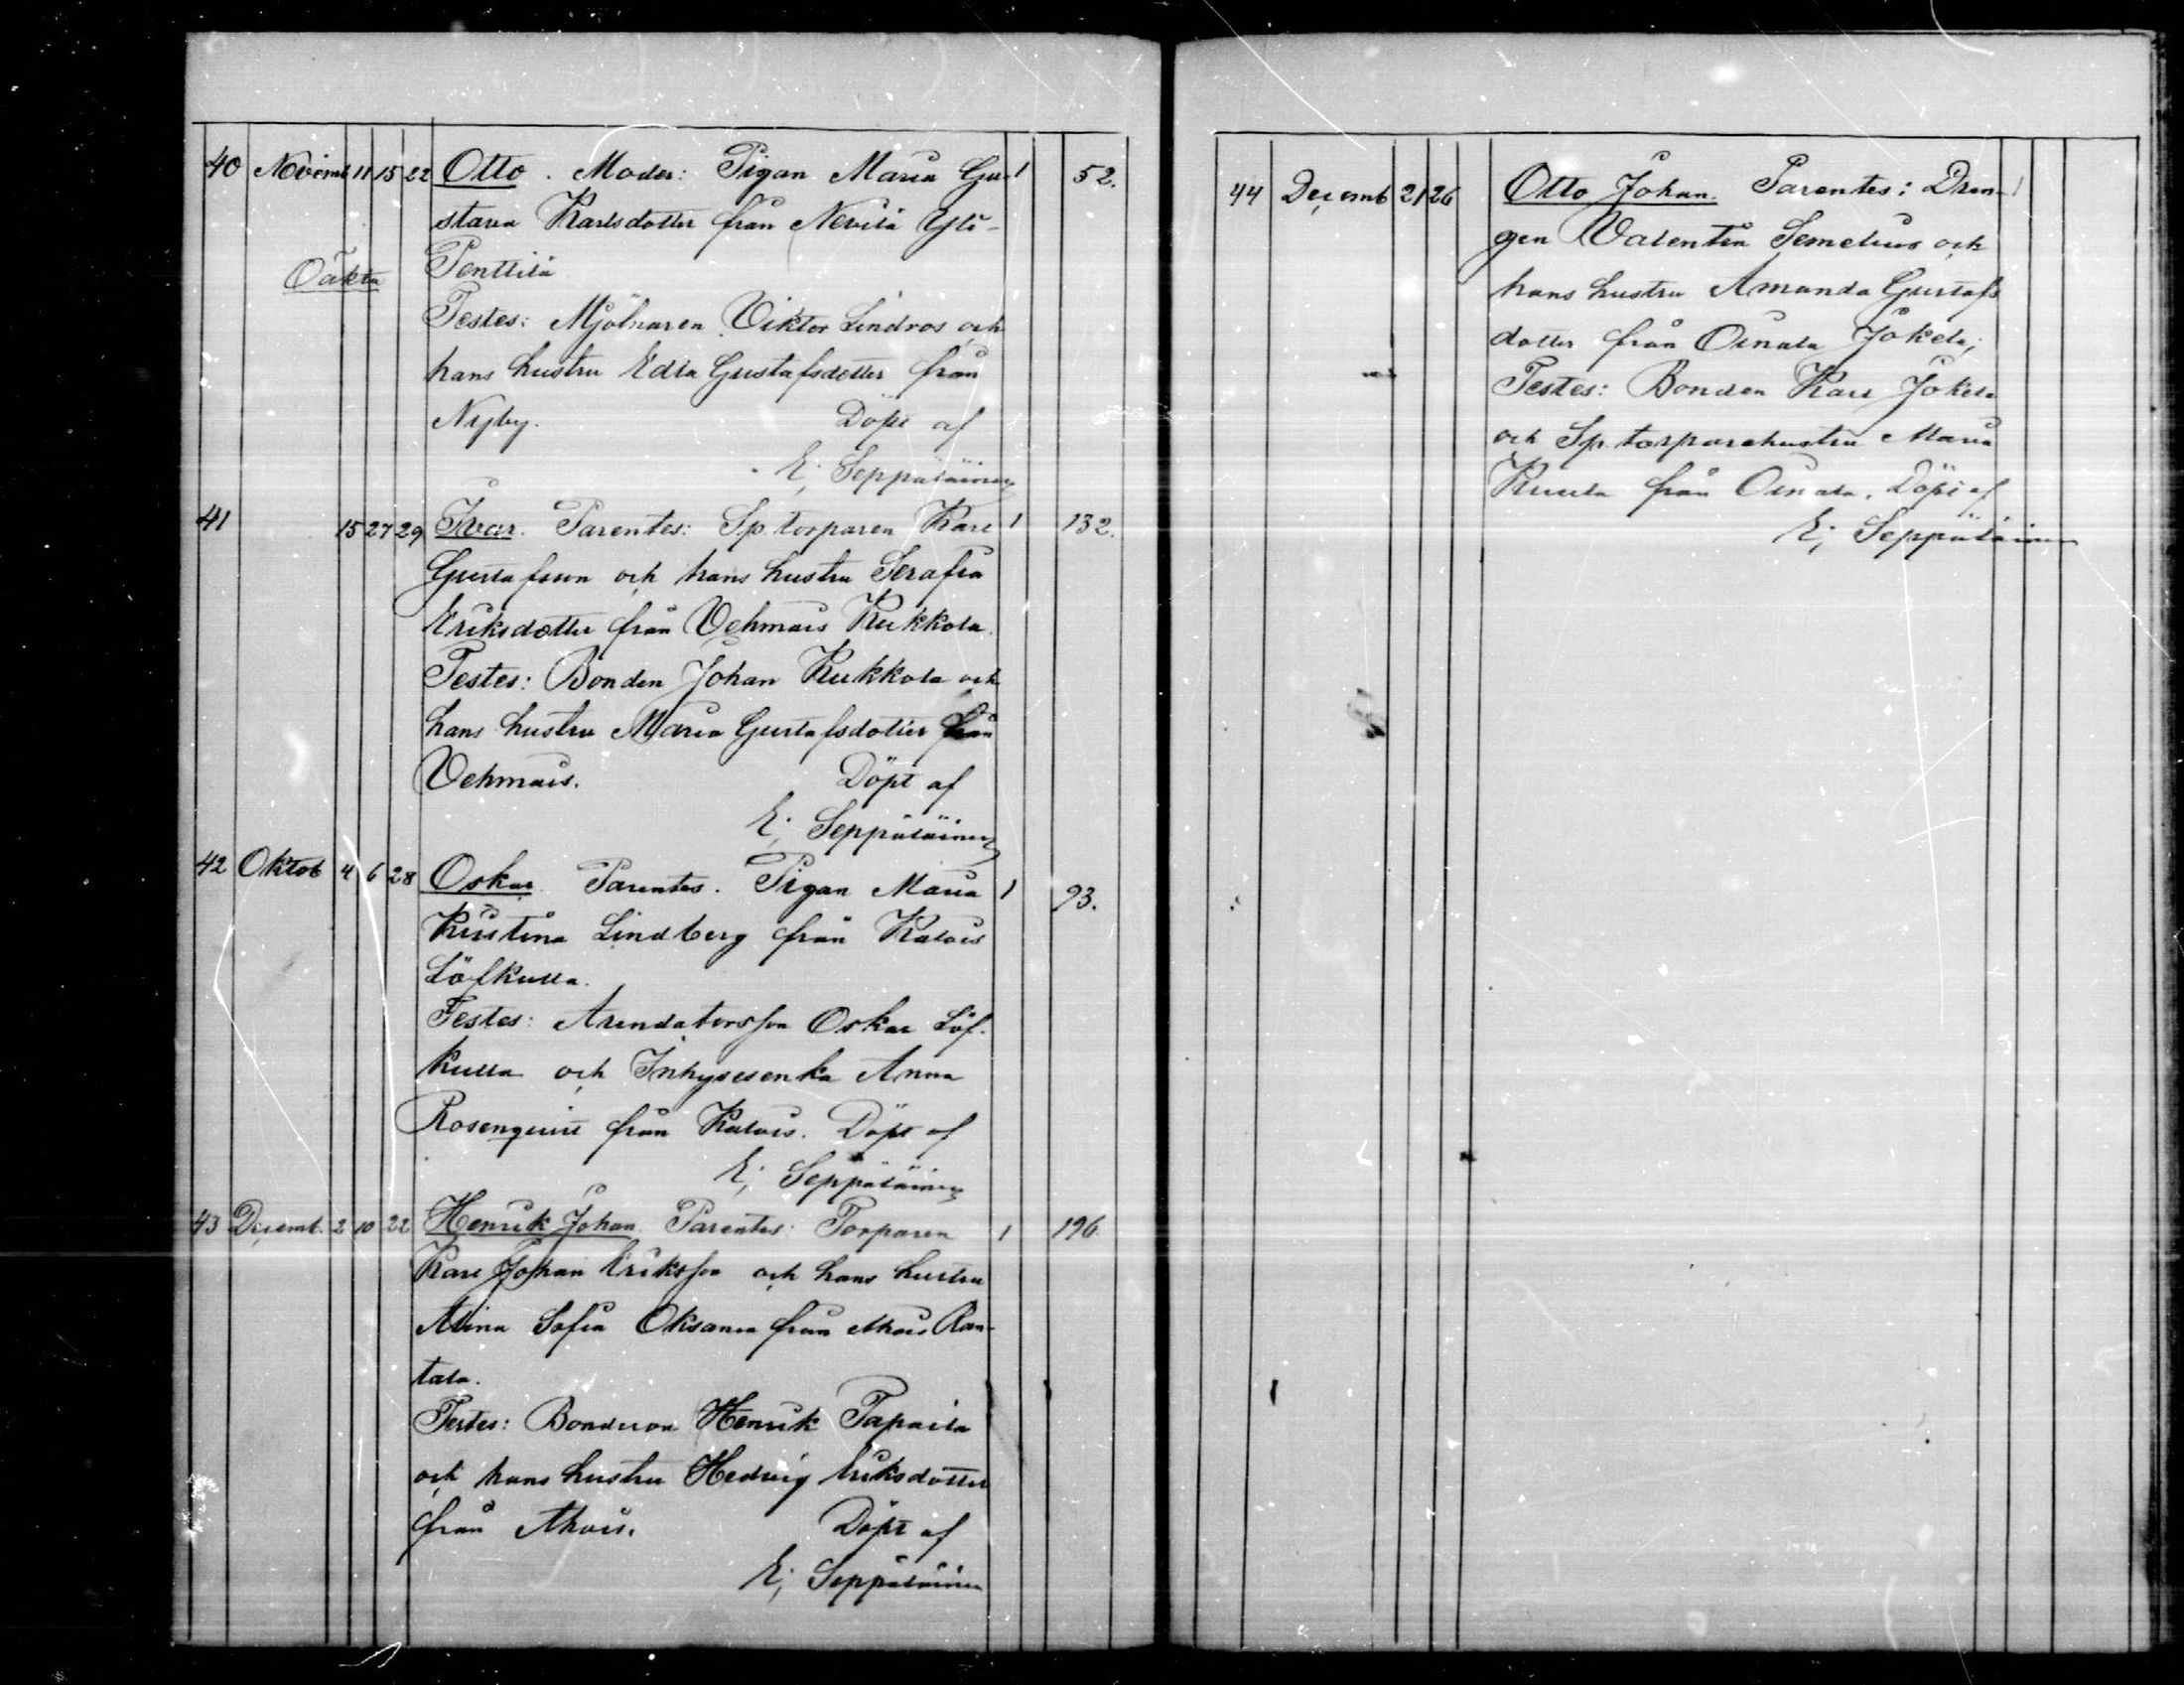 40 Novemb 11 15 22 Otto. Moder: Pigan Maria Gu- 1 52.
stava Karlsdotter från Nevilä Yli-
Oäkta Penttilä
Testes: Mjölnaren Viktor Lindros och
hans hustru Edla Gustafsdotter från
Nyby. Döpt af
E; Seppäläinen
41 15 27 29 Ivar. Parentes: Sp. torparen Karl 1 132.
Gustafsson och hans hustru Serafia
Eriksdotter från Vehmais Kukkola.
Testes: Bonden Johan Kukkola och
hans hustru Maria Gustafsdotter från
Vehmais. Döpt af
E; Seppäläinen
42 Oktob 4 6 28 Oskar Parentes. Pigan Maria 1 93.
Kristina Lindberg från Kalois
Löfkulla.
Testes: Arendatorsson Oskar Löf-
kulla och Inhysesenka Anna
Rosenqvist från Kalois. Döpt af
E; Seppäläinen
43 Decemb. 2 10 22 Henrik Johan. Parentes: Torparen 1 196.
Karl Johan Eriksson och hans hustru
Alina Sofia Oksanen från Ahois Ran-
tala.
Testes: Bondeson Henrik Tapaila
och hans hustru Hedvig Eriksdotter
från Ahois. Döpt af
E; Seppäläinen
44 Decemb 21 26 Otto Johan. Parentes: Dren- 1
gen Valentin Semelius och
hans hustru Amanda Gustafs
dotter från Oinala Jokela;
Testes: Bonden Karl Jokela
och Sp. torparehustru Maria
från Oinala. Döpt af
E; Seppäläinen